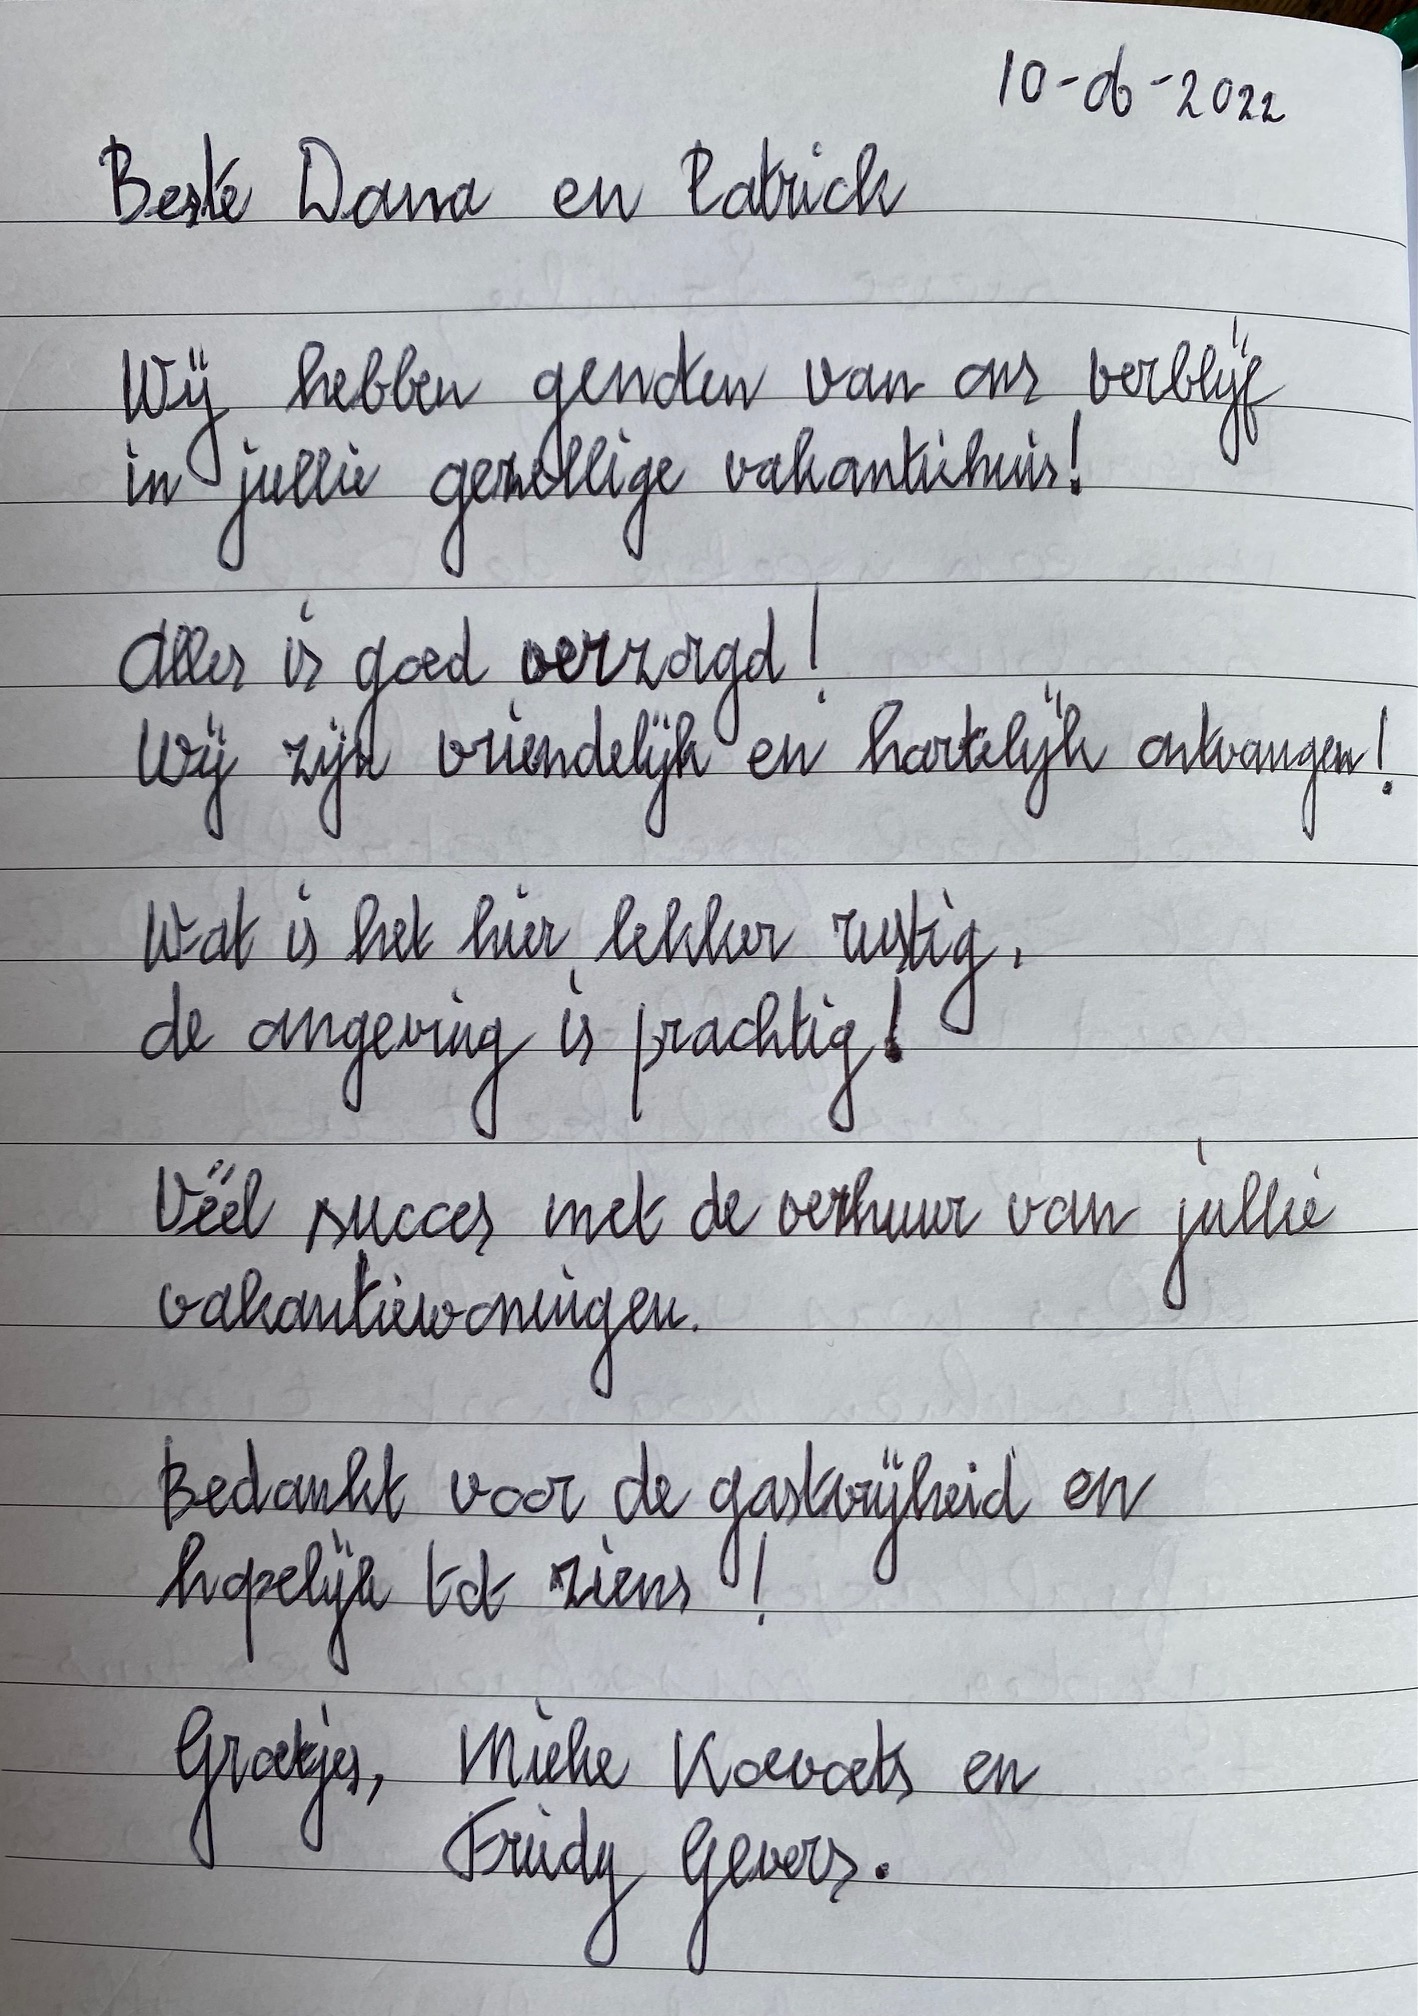 10-06-2022
Beste Dana en Patrick
Wij hebben genoten van ons verblijf
in jullie gezellige vakantiehuis!
Alles is goed verzorgd!
Wij zijn vriendelijk en hartelijk ontvangen!
Wat is het hier lekker rustig,
de omgeving is prachtig!
Véél succes met de verhuur van jullie
vakantiewoningen.
Bedankt voor de gastvrijheid en
hopelijk tot ziens!
Groetjes, Mieke Koevoets en
Friedy Gevers.